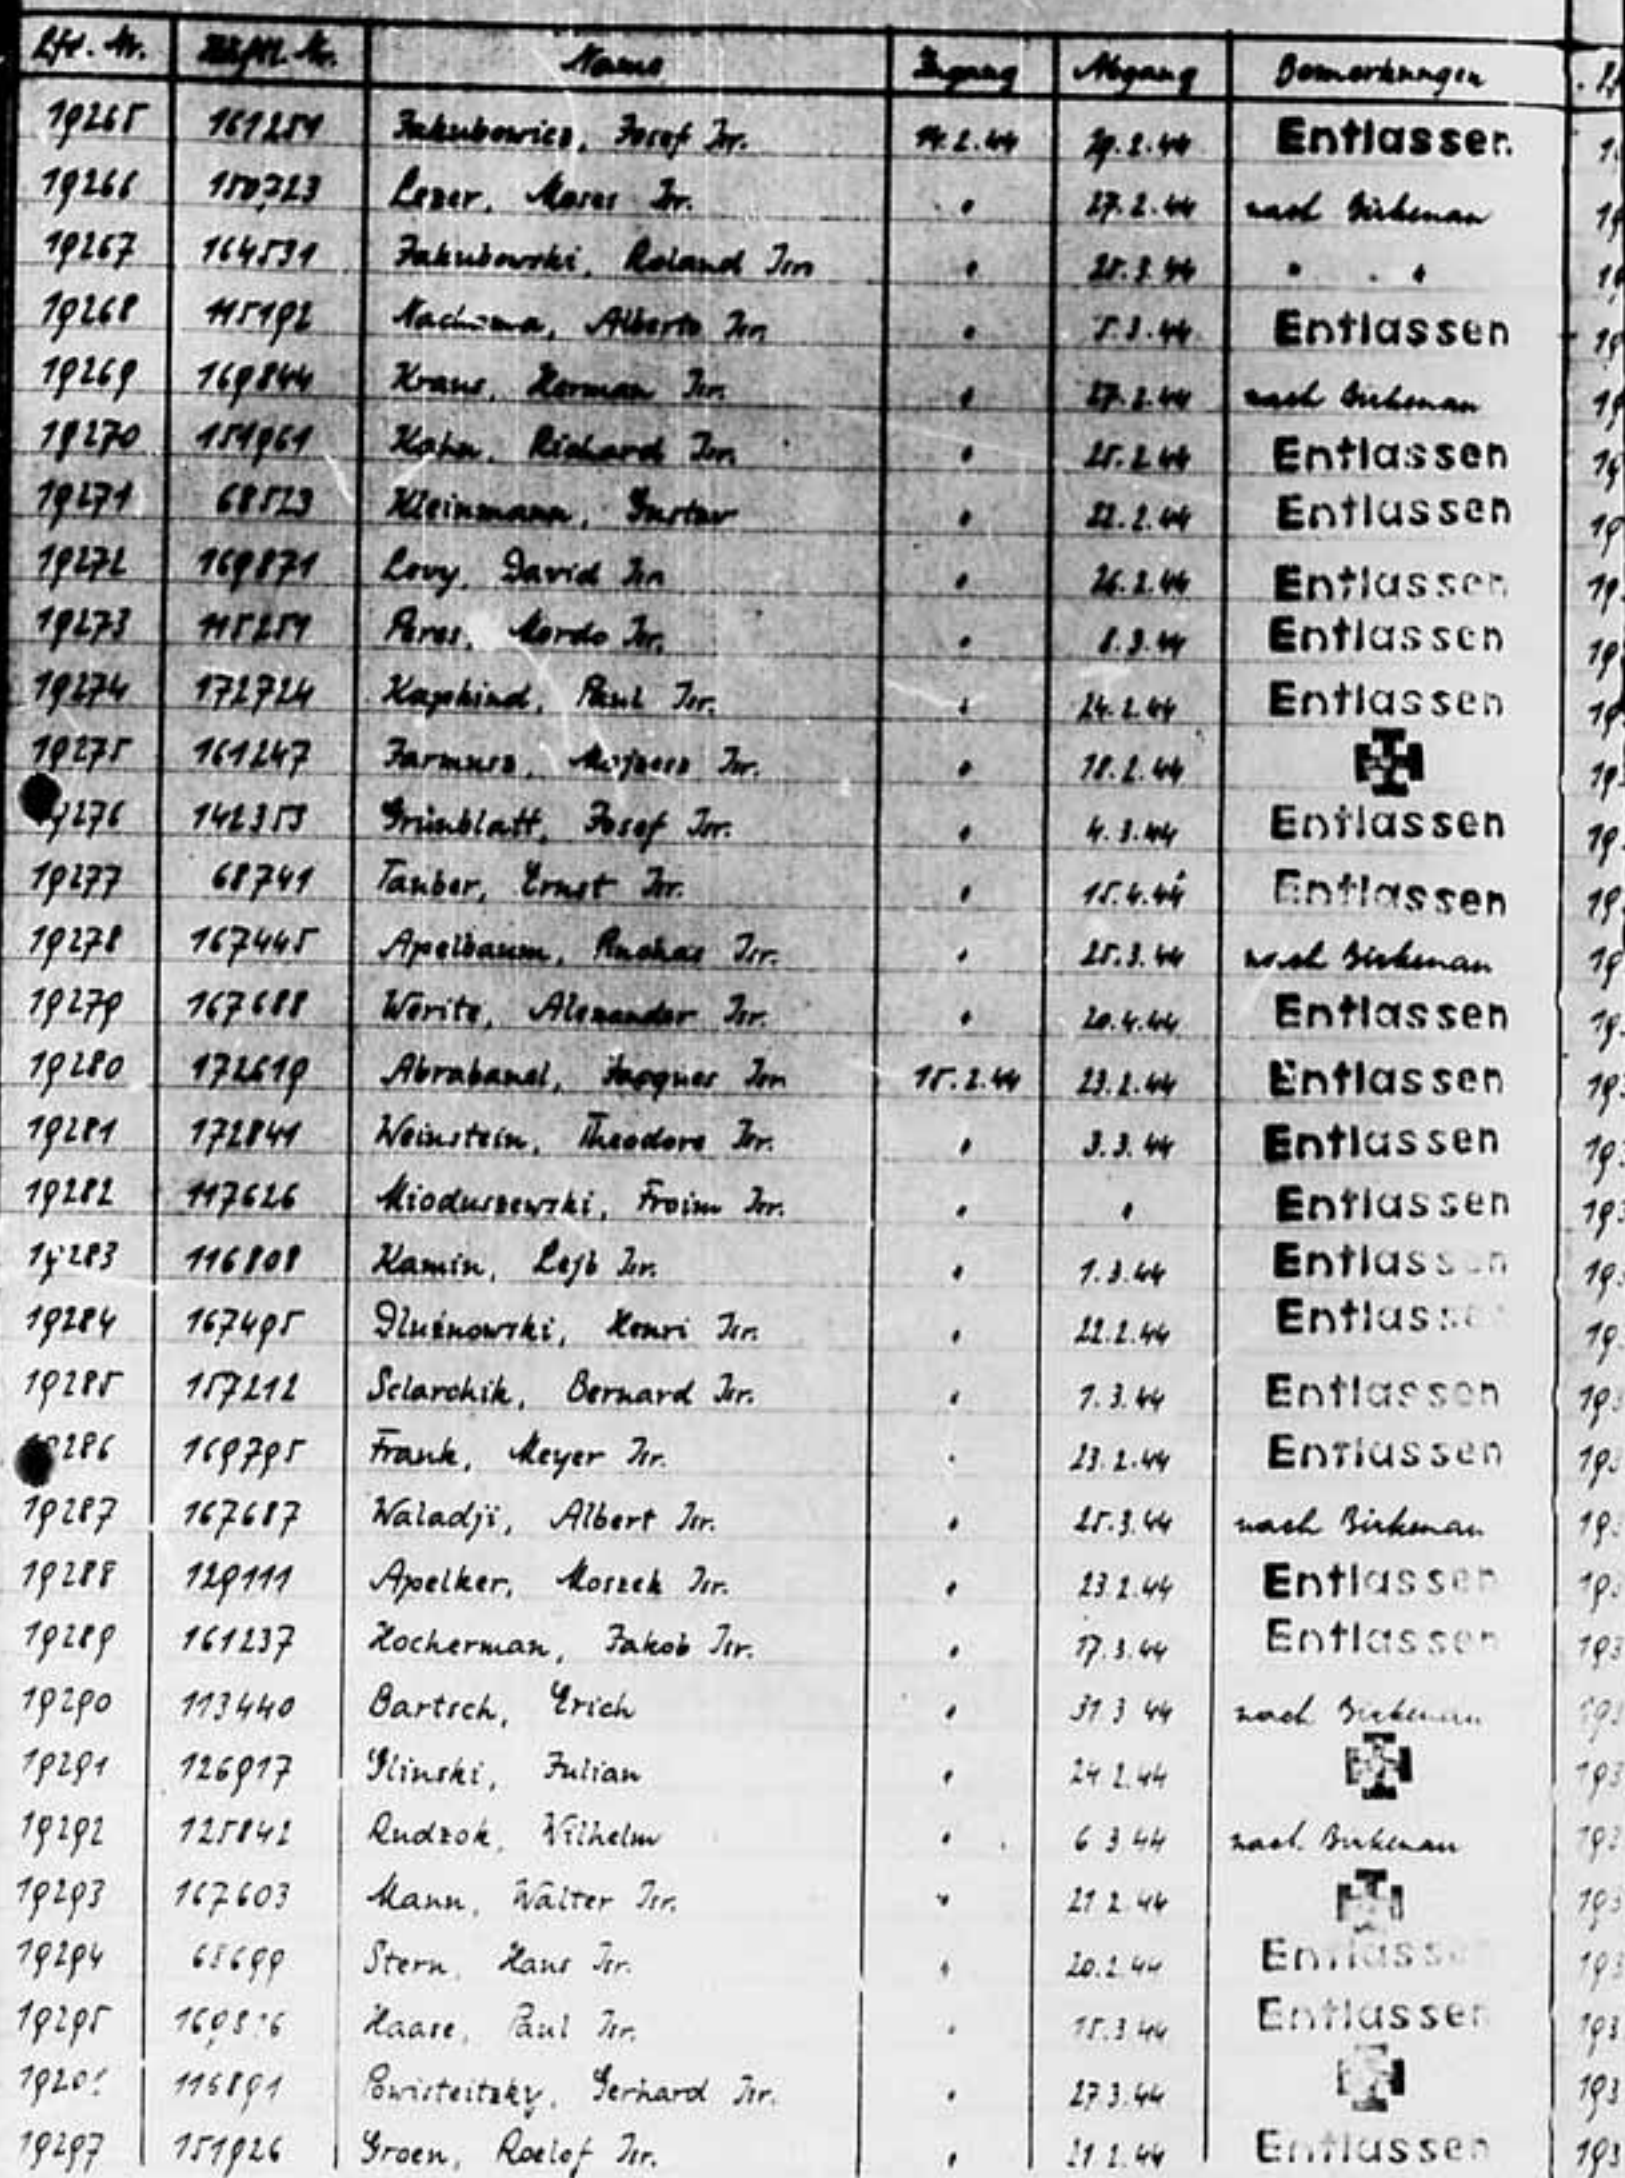 Lfd. Nr. Häftl. Nr. Name Zugang Abgang Bemerkungen
19265 161251 Jakubowicz, Josef Isr. 14.2.44 29.2.44 Entlassen
19266 150723 Lezer, Moses Isr. " 27.2.44 nach Birkenau
19267 164531 Jakubowski, Roland Isr. " 25.3.44 " "
19268 115192 Alberto Isr. " 5.3.44 Entlassen
19269 169844 Kraus, Herman Isr. " 27.2.44 nach Birkenau
19270 151961 Kahn, Richard Isr. " 25.2.44 Entlassen
19271 68523 Kleinmann, Gustav " 22.2.44 Entlassen
19272 169871 Levy, David Isr. " 26.2.44 Entlassen
19273 115251 Peres, Mordo Isr. " 8.3.44 Entlassen
19274 172724 Kapskind, Paul Isr. " 24.2.44 Entlassen
19275 161247 Jarmusz, Isr. " 18.2.44
19276 142353 Grünblatt, Josef Isr. " 4.3.44 Entlassen
19277 68741 Tauber, Ernst Isr. " 15.4.44 Entlassen
19278 167445 Apelbaum, Isr. " 25.3.44 nach Birkenau
19279 167688 Weritz, Alexander Isr. " 20.4.44 Entlassen
19280 172619 Abrabanel, Jacques Isr. 15.2.44 23.2.44 Entlassen
19281 172841 Weinstein, Theodore Isr. " 3.3.44 Entlassen
19282 117626 Mioduszewski, Froim Isr. " " Entlassen
19283 116808 Kamin, Lejb Isr. " 1.3.44 Entlassen
19284 167495 Dlużnowski, Henri Isr. " 22.2.44 Entlassen
19285 157212 Sclarchik, Bernard Isr. " 1.3.44 Entlassen
19286 169795 Frank, Meyer Isr. " 23.2.44 Entlassen
19287 167687 Waladji, Albert Isr. " 25.3.44 nach Birkenau
19288 129111 Apelker, Moszek Isr. " 23.2.44 Entlassen
19289 161237 Hocherman, Jakob Isr. " 17.3.44 Entlassen
19290 113440 Bartsch, Erich " 31.3.44 nach Birkenau
19291 126917 Glinski, Julian " 24.2.44
19292 125842 Rudzok, Wilhelm " 6.3.44 nach Birkenau
19293 167603 Mann, Walter Isr. " 21.2.44
19294 68699 Stern, Hans Isr. " 20.2.44 Entlassen
19295 Haase, Paul Isr. " 15.3.44 Entlassen
116891 Gerhard Isr. " 27.3.44
19297 151926 Groen, Roelof Isr. " 21.2.44 Entlassen